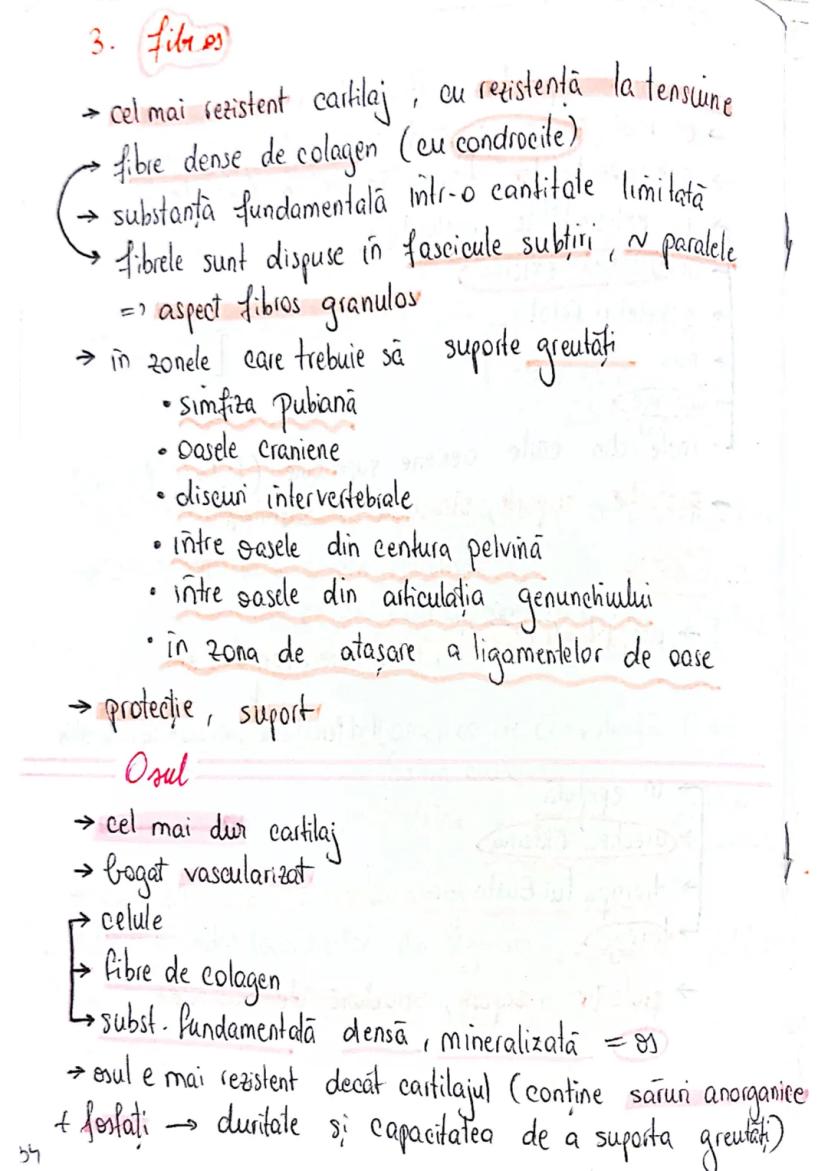 3. fibros
→ cel mai rezistent cartilaj, cu rezistență la tensiune
→ fibre dense de colagen (cu condrocite)
→ substanță fundamentală într-o cantitate limitată
→ fibrele sunt dispuse în fascicule subțiri, ~ paralele
=> aspect fibros granulos
→ în zonele care trebuie să suporte greutăți
• simfiza pubiană
• oasele craniene
• discuri intervertebrale
• între oasele din centura pelvină
• între oasele din articulația genunchiului
• în zona de atașare a ligamentelor de oase
→ protecție, suport
Osul
→ cel mai dur cartilaj
→ bogat vascularizat
→ celule
→ fibre de colagen
→ subst. fundamentală densă, mineralizată = os
→ osul e mai rezistent decât cartilajul (conține săruri anorganice
+ fosfați → duritate și capacitatea de a suporta greutăți)